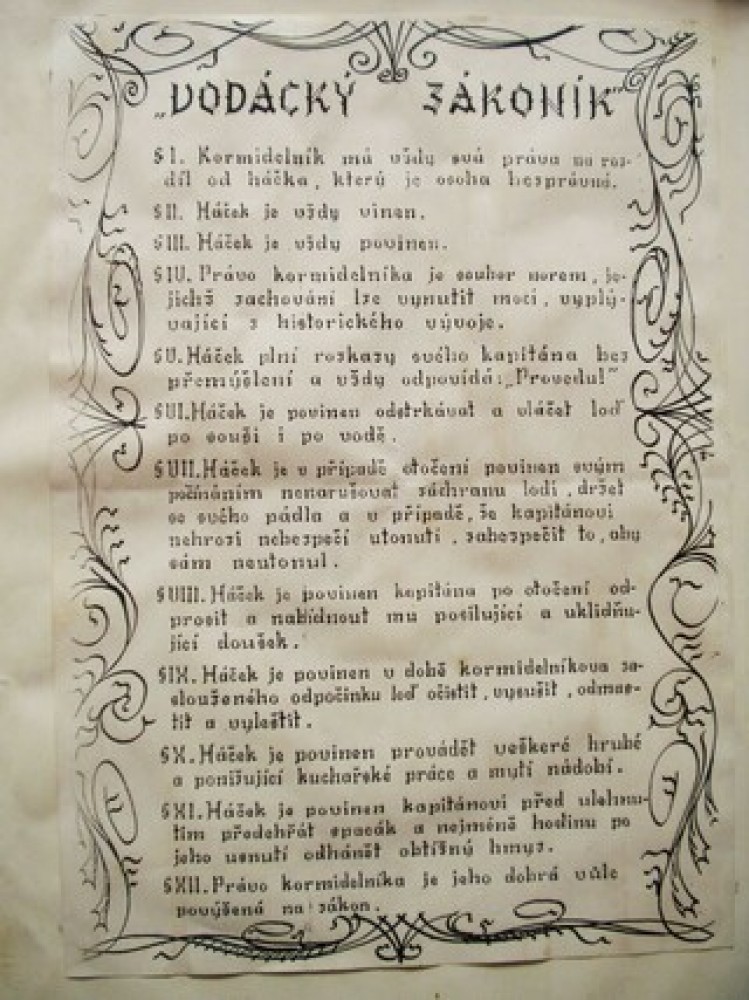 „VODÁCKÝ ZÁKONÍK"
§ I. Kormidelník má vždy svá práva na roz-
díl od háčka, který je osoba bezprávná.
§ II. Háček je vždy vinen.
§ III. Háček je vždy povinen.
§ IV. Právo kormidelníka je souhor norem, je-
jichž zachování lze vynutit mocí, vyplý-
vající z historického vývoje.
§ V. Háček plní rozkazy svého kapitána bez
přemýšlení a vždy odpovídá: „Provedu!"
§ VI. Háček je povinen odstrkávat a vláčet loď
po souši i po vodě.
§ VII. Háček je v případě otočení povinen svým
počínáním nenarušovat záchranu lodi, držet
se svého pádla a v případě, že kapitánovi
nehrozí nebezpečí utonutí, zabezpečit to, aby
sám neutonul.
§ VIII. Háček je povinen kapitána po otočení od-
prosit a nabídnout mu posilující a uklidňu-
jící doušek.
§ IX. Háček je povinen v době kormidelníkova za-
slouženého odpočinku loď očistit, vysušit, odmas-
tit a vyleštit.
§ X. Háček je povinen provádět veškeré hrubé
a ponižující kuchařské práce a mytí nádobí.
§ XI. Háček je povinen kapitánovi před ulehnu-
tím předehřát spacák a nejméně hodinu po
jeho usnutí odhánět obtížný hmyz.
§ XII. Právo kormidelníka je jeho dobrá vůle
povýšená na zákon.